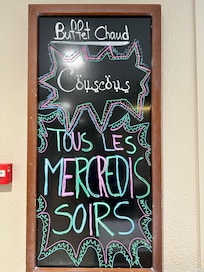 Buffet Chaud
Couscous
TOUS LES
MERCREDIS
SOIRS